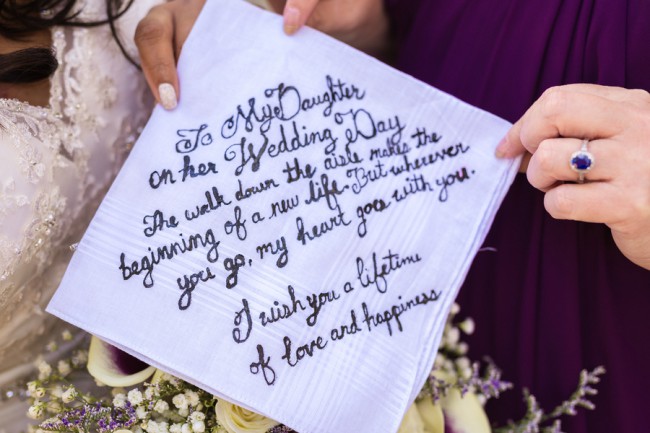 To My Daughter
on her Wedding Day
The walk down the aisle makes the
beginning of a new life. But wherever
you go, my heart goes with you.
I wish you a lifetime
of love and happiness